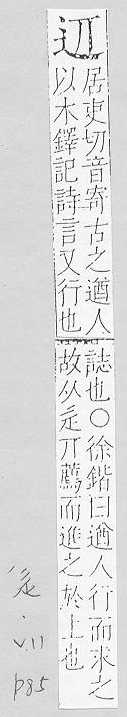 䢋
居吏切音寄古之遒人
以木鐸記詩言又行也
誌也○徐鍇曰遒人行而求之
故从辵丌薦而進之於上也
辵.
VII
p85